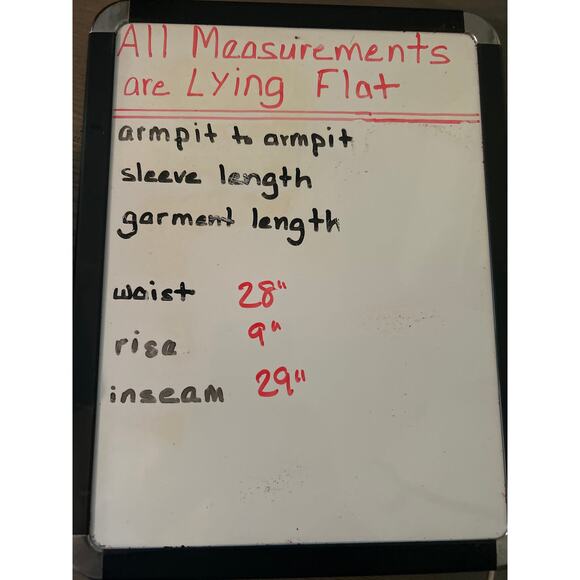 All Measurements
are Lying Flat
armpit to armpit
sleeve length
garment length
waist 28"
rise 9"
inseam 29"